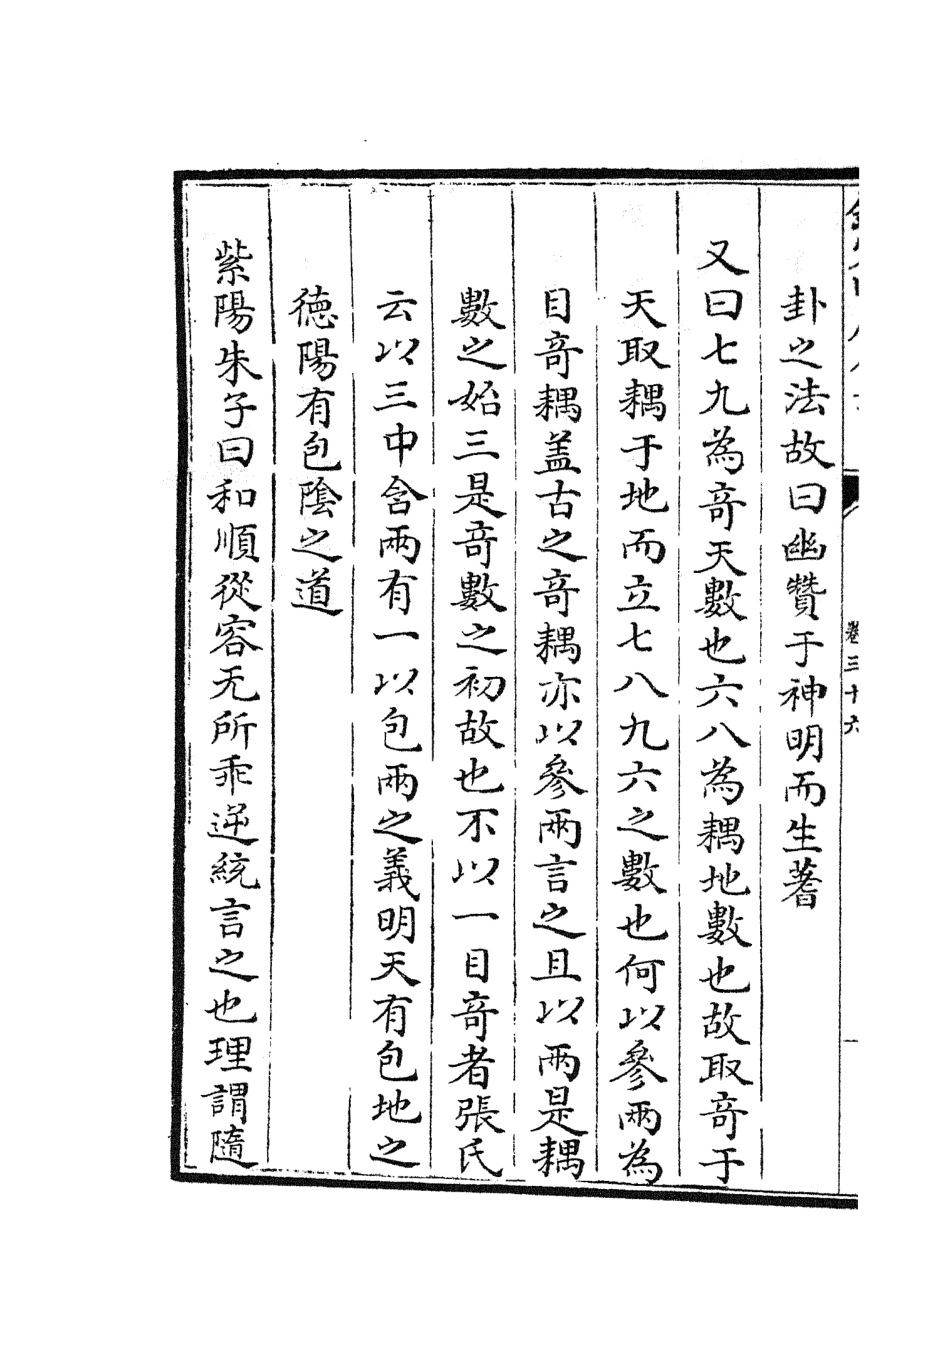 卷三十六
卦之法故曰幽贊于神明而生蓍
又曰七九為竒天數也六八為耦地數也故取竒于
天取耦于地而立七八九六之數也何以參兩為
目竒耦盖古之竒耦亦以參兩言之且以兩是耦
數之始三是竒數之初故也不以一目竒者張氏
云以三中含兩有一以包兩之義明天有包地之
德陽有包陰之道
紫陽朱子曰和順從容无所乖逆統言之也理謂隨